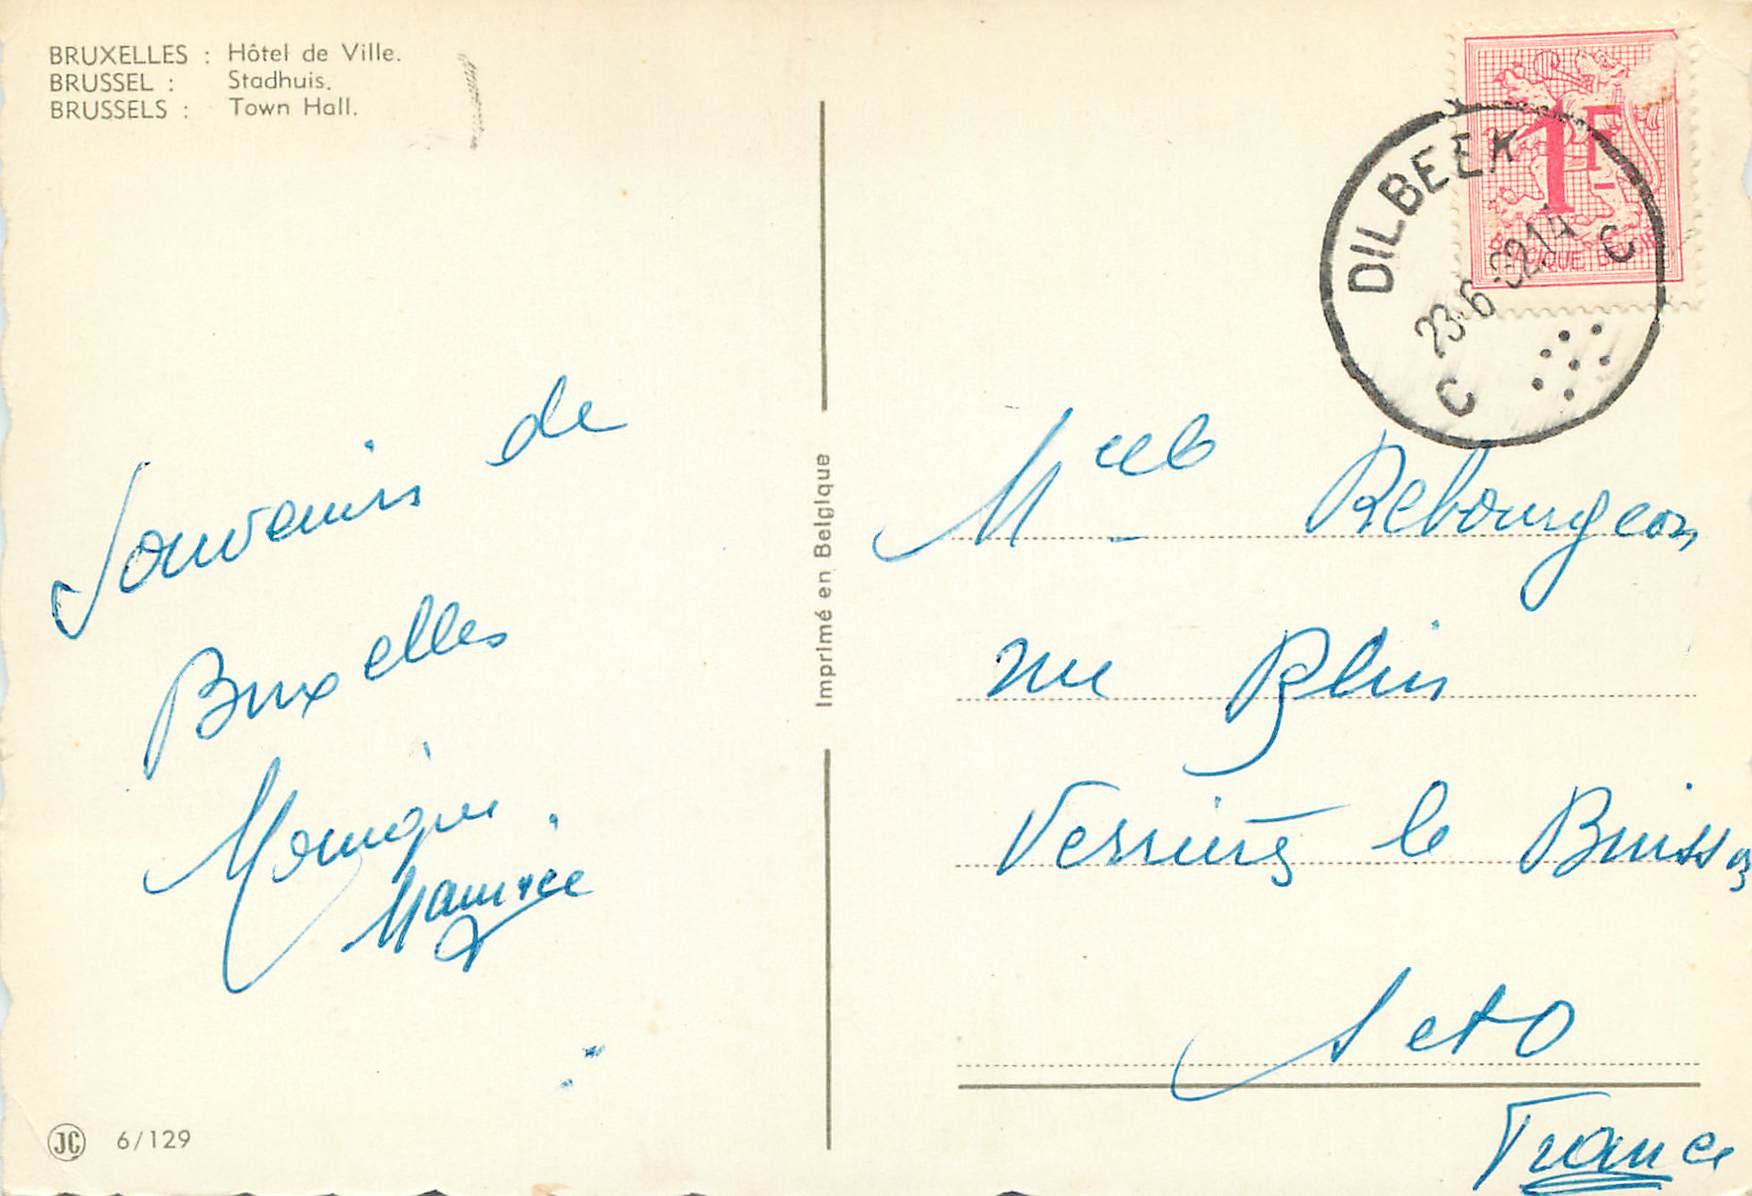 BRUXELLES : Hôtel de Ville.
BRUSSEL : Stadhuis.
BRUSSELS : Town Hall.
Souvenirs de
Bruxelles
Monique
Maurice
JC 6/129
Imprimé en Belgique
1F
BELGIQUE BELGIE
DILBEEK
23-6 14
C C
Melle Rebourgeon
rue Blin
Verrières le Buisson
S et O
France